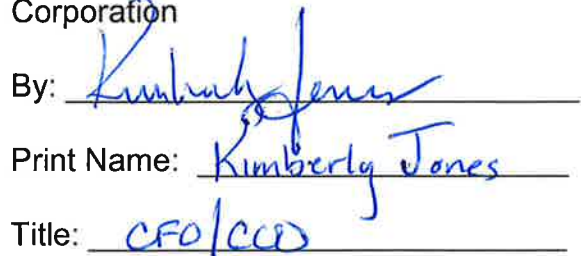 Corporation
By: Kimberly Jones
Print Name: Kimberly Jones
Title: CFO/COO